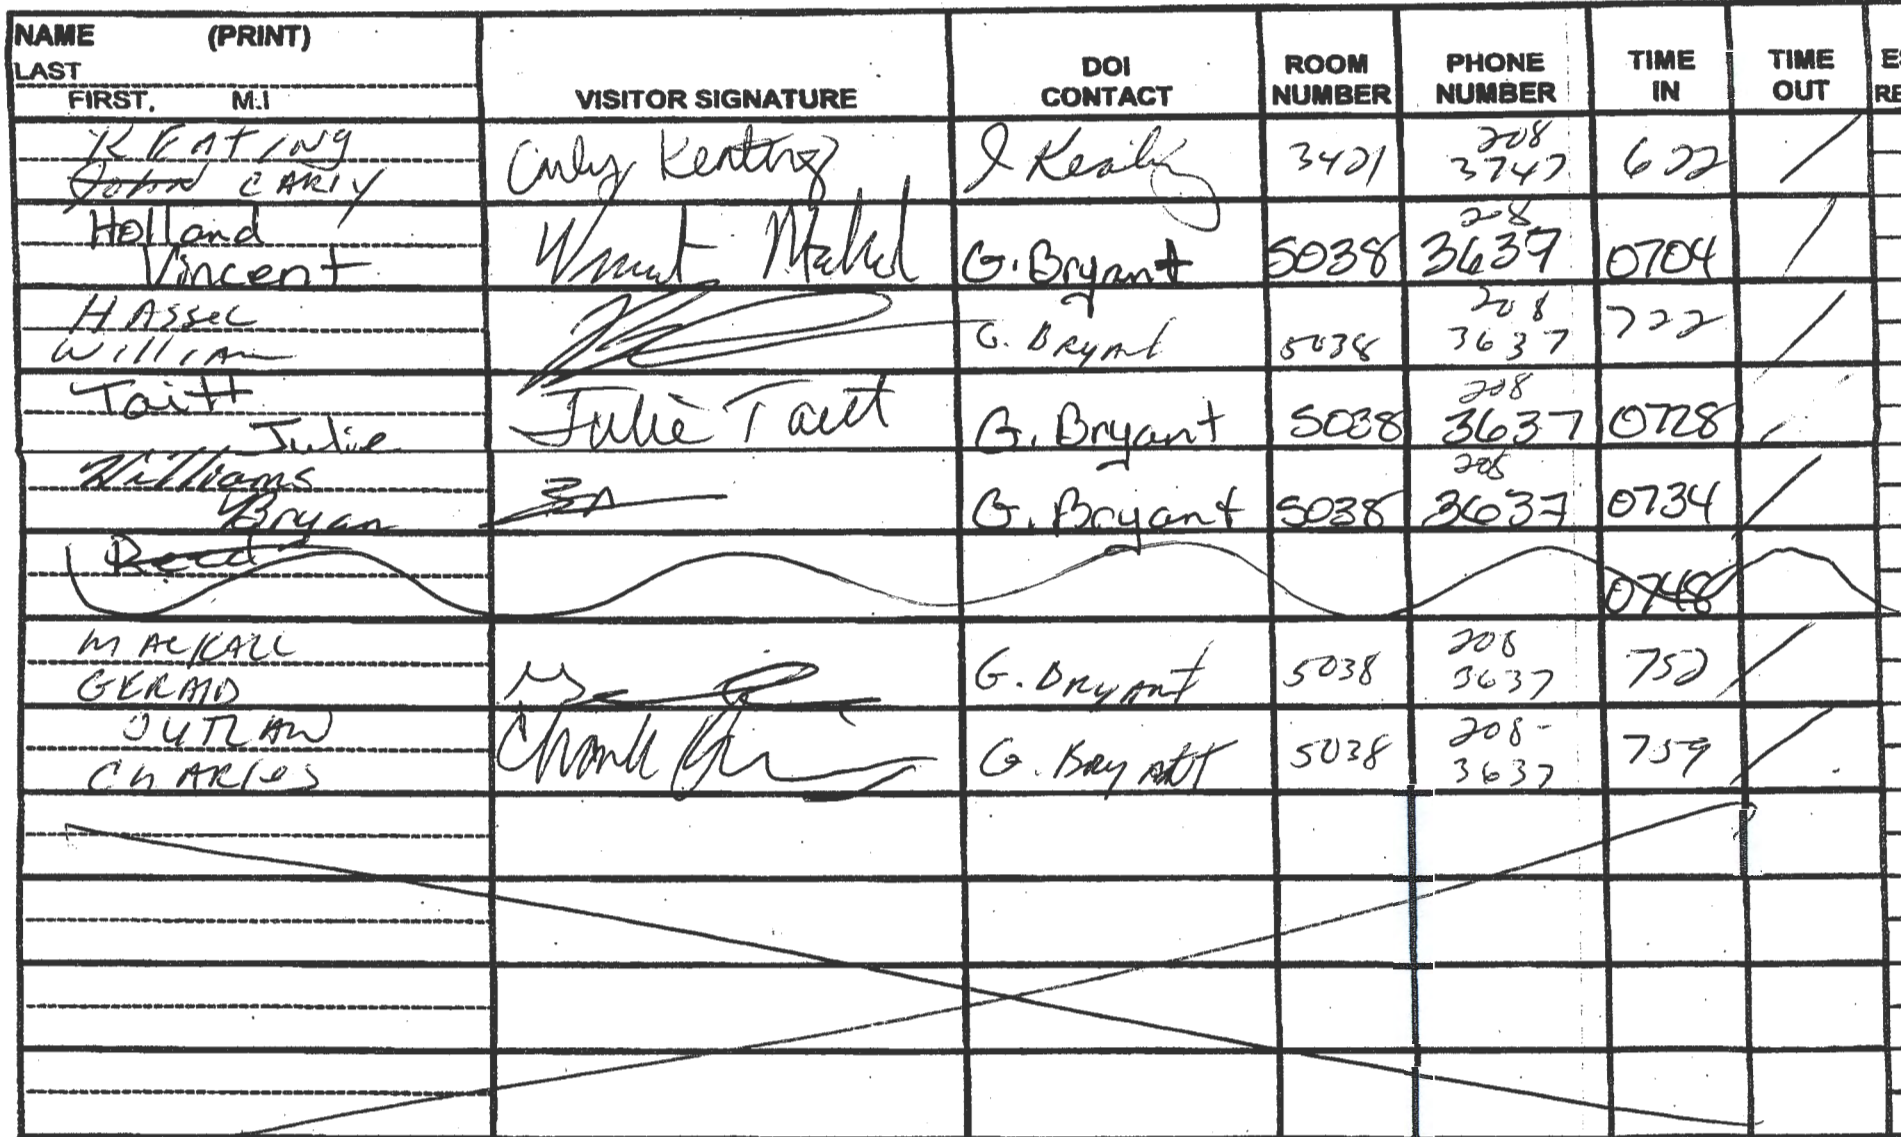 NAME (PRINT)
LAST
FIRST, M.I
VISITOR SIGNATURE
DOI CONTACT
ROOM NUMBER
PHONE NUMBER
TIME IN
TIME OUT
KEATING
John CARLY
Carly Keating
J Keating
3421
208
3747
622
Holland
Vincent
G. Bryant
5038
208
3637
0704
HASSEL
William
G. Bryant
5038
208
3637
722
Taitt
Julie
Julie Taitt
G. Bryant
5038
208
3637
0728
Williams
Bryan
G. Bryant
5038
208
3637
0734
Reed
0748
MACKALL
GERALD
G. Bryant
5038
208
3637
752
OUTLAW
CHARLES
G. Bryant
5038
208-
3637
759